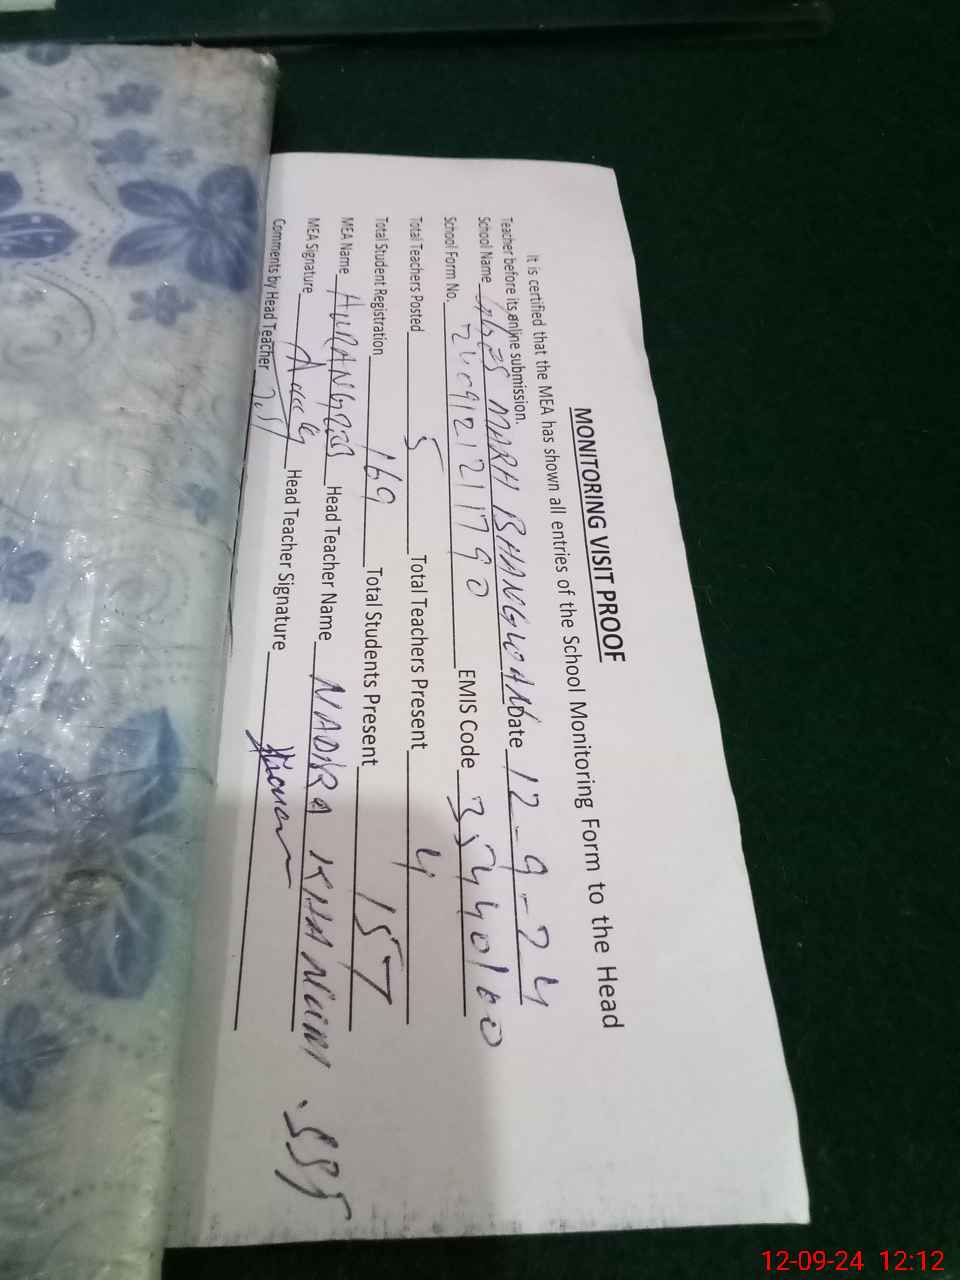 MONITORING VISIT PROOF
It is certified that the MEA has shown all entries of the School Monitoring Form to the Head
Teacher before its online submission.
School Name MARH BHANGWAN Date 12-9-24
School Form No. EMIS Code 35440100
Total Teachers Posted 5 Total Teachers Present 4
Total Student Registration 169 Total Students Present 157
MEA Name Head Teacher Name NADRA KHANUM
MEA Signature Head Teacher Signature
Comments by Head Teacher
12-09-24 12:12